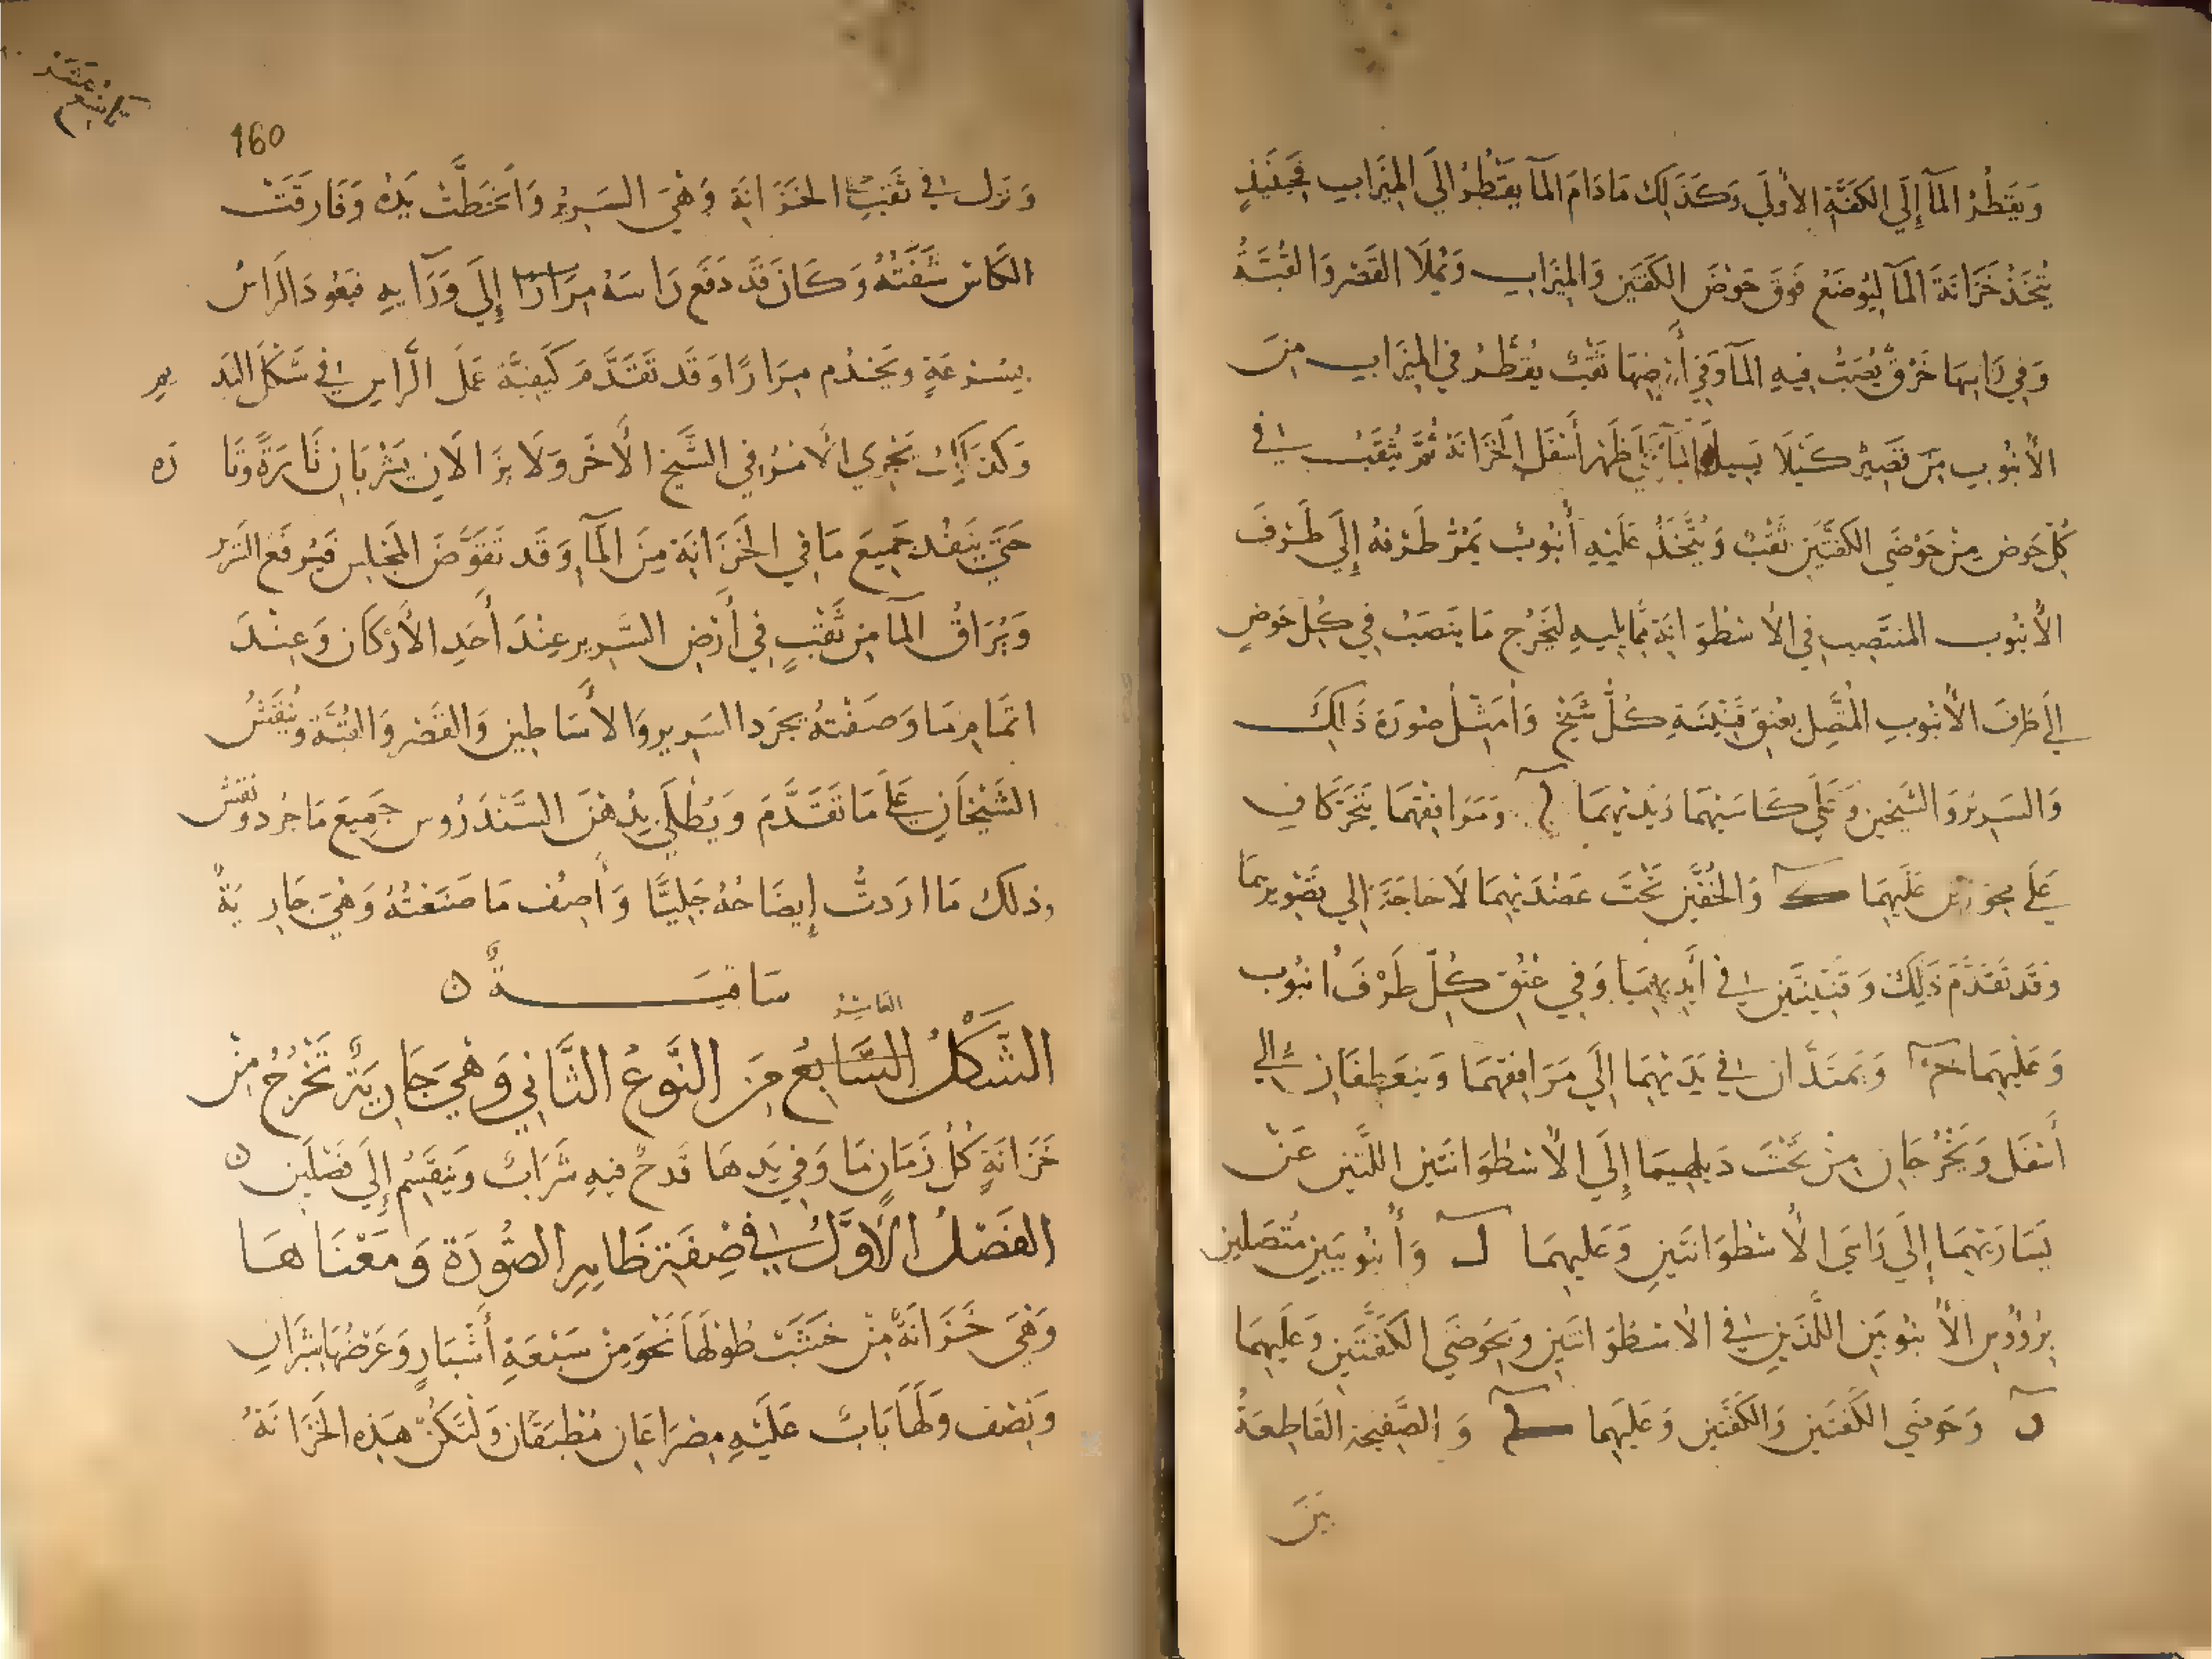 وَيَقطُرُ المآ إِلَي الكَفَّةِ الأولَي وَكَذَلِكَ مَا دَامَ المآ يَقطُرُ الَي المِيزَاب فَحِينَئِذٍ
يُتَّخَذُ خَزَانَةَ المآ لِيُوضَعَ فَوقَ حَوْضَى الكَفتَين وَالمِيزَاب وَيُمْلَا القَصْر وَالقُبَّةُ
وَفِي رَاسِهَا خَرْقٌ يُصَبُّ فِيهِ المآ وَفِي أَرضِهَا ثَقْبٌ يُقَطِّرُ فِي المِيزَاب مِنَ
الأُنبُوبِ قَصِيرٌ كَيْلَا يَسِيلَ المآ ظَهْر أَسْفَلِ الخَزَانَة ثُمَّ يُثقَبُ فِي
كُلِّ حَوض مِنْ حَوْضَى الكَفتَيْنِ ثَقْبٌ وَيُتَّخَذُ عَلَيْهِ أُنْبُوبٌ يَمُرُّ طَرْفَهُ إِلَي طَرْفَ
الأُنبُوب المنتَصِبِ فِي الأسْطوَانَةِ مِمَّا يَلِيهِ لِيَخْرُج مَا يَنصَبُّ فِي كُلِّ حَوضٍ
إلَي طَرَفَ الأُنْبُوبِ المُتَّصِلِ بِعُنِقِ قِنِّينَةِ كُلّ شَيْخ وَأُمَثِّلْ صُورَة ذَلِكَ
وَالسَرِيرَ وَالشَيخين وَعَلَى كَاسَيْهِمَا وَيَدَيْهِمَا ل وَمَرَافِقَهمَا يَتَحَرَّكَانِ
عَلَي مِحوَرَيْنِ عَلَيهِمَا ك وَالخُفَّيْنِ تَحْتَ عَضُدَيْهِمَا لَا حَاجَةَ إلي تَصْوِيرِهِمَا
وَقَد تَقَدَّمَ ذَلِكَ وَقنِينَتَينِ فِي أَيدِيهِمَا وَفِي عُنُقِ كُلِّ طَرْفَ أُنبُوب
وَعَلَيْهِمَا م وَيَمتَدَّان فِي يَدَيْهِمَا إِلَي مَرَافِقِهِمَا وَينعَطِفَانِ إلي
أَسْفَل وَيَخْرُجَانِ مِنْ تَحْتَ ذَيلَيهِمَا إِلَي الأُسْطوَانَتَين اللَّتَينِ عَنْ
يَسَارَيهِمَا إِلَي رَاسَي الأُسْطوَانَتَينِ وَعَليهِمَا ل وَأُنبُوبَيْنِ مُتَّصلَينِ
بِرُؤوسِ الأنبُوبَين اللَّذَينِ فِي الأسْطوَانتَينِ وَبِحَوضَي الكَفَّتَينِ وَعَلَيهِمَا
ن وَحَوضَي الكَفَّتَينِ وَالكَفَّتَينِ وَعَلَيهِمَا س وَالصَّفِيحَة القَاطِعَةُ
بَيْنَ
160
وَنَزَل فِي ثَقبِ الخَزَانَةِ وَهْيَ السَرِيرُ وَانْحَطَّتْ يَدُهُ وَفَارَقَتْ
الكَاسُ شَفَتَهُ وَكَانَ قَد دَفَعَ رَاسَهُ مِرَارًا إِلَي وَرَآيهِ فَيَعُودَ الرَّاسُ
بِسُرْعَةٍ وَيَخدُم مِرَارًا وَقَد تَقَدَّمَ كَيفِيَّة عَمَل الرَّاسِ فِي شَكْلِ النَدِيمِ
وَكَذَلِكَ يَجْرِي الأَمْرُ فِي الشَّيْخ الأَخَر وَلَا يزَالَانِ يَشْرَبَانِ تَارَةً وَتَارَه
حَتَّي يَنفُد جَمِيعَ مَا فِي الخَزَانَةِ مِنَ المآ وَقَد تَقَوَّضَ المَجلِس فَيُرفَع السَرِير
وَيُرَاقُ المآ مِنْ ثَقْبٍ فِي أَرْضِ السَّرِيرِ عِنْدَ أَحَدِ الأَرْكَانِ وَعِنْدَ
اتمَامِ مَا وَصَفْتهُ يجَرَد السَرِير وَالأَسَاطِين وَالقَصْر وَالقُبَّة وَيُنقَشُ
الشَيْخَانِ عَلَي مَا تَقَدَّمَ وَيُطْلَي بِدُهْنِ السَّنْدَرُوس جَمِيعَ مَا جُرد وَنقشَ
وَذلك مَا ارَدتُّ إِيضَاحُهُ جَلِيًّا وَأَصِفُ مَا صَنَعْتُهُ وَهْيَ جَارِيَةٌ
سَاقِيَـةٌ ن
العَاشِرُ
الشَّكْلُ السَّابِعُ مِنَ النَّوْعُ الثَّانِي وَهْيَ جَارِيَةٌ تَخْرُجُ مِنْ
خَزَانَةٍ كُلّ زَمَانٍ مَا وَفِي يَدِهَا قَدحٌ فِيهِ شَرَابٌ وَيَنقَسِمُ إِلَي فَصْلَين ن
الفَصْلُ الأَوَّلُ فِي صِفَةِ ظَاهِرِ الصُّورَة وَمَعْنَاهَا
وَهْيَ خَزَانَةٌ مِنْ خَشَبْ طُولهَا نَحْوَ مِنْ سَبْعَةِ أَشْبَارٍ وَعَرْضُهَا شِبْرَانِ
وَنِصْف وَلَهَا بَابٌ عَلَيْهِ مِصْرَاعَانِ مُطْبَقَانِ وَلتَكُنْ هَذِه الخَزَانَةُ